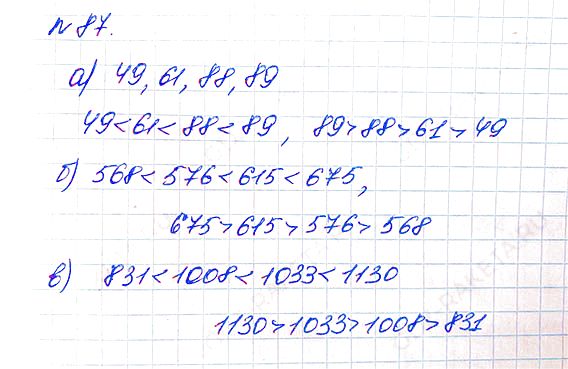 № 87.
а) 49, 61, 88, 89
49 < 61 < 88 < 89 , 89 > 88 > 61 > 49
б) 568 < 576 < 615 < 675,
675 > 615 > 576 > 568
в) 831 < 1008 < 1033 < 1130
1130 > 1033 > 1008 > 831